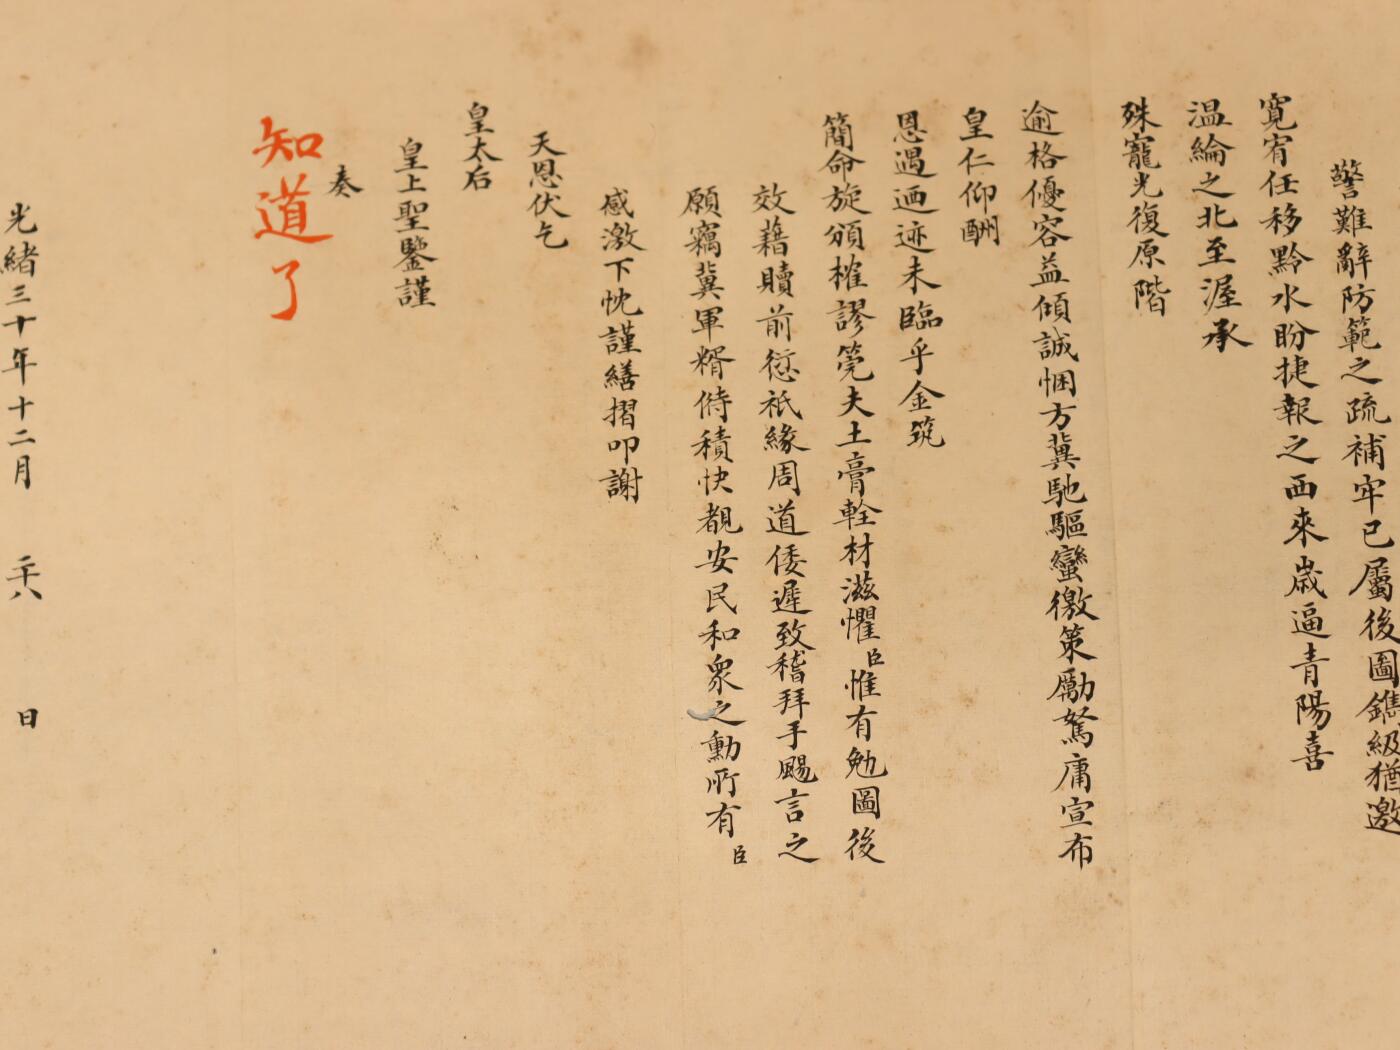 警難辭防範之疏補牢已屬後圖鐫級猶邀
寬宥任移黔水盼捷報之西來歲逼青陽喜
温綸之北至渥承
殊寵光復原階
逾格優容益傾誠悃方冀馳驅蠻徼策勵駑庸宣布
皇仁仰酬
恩遇迺迹未臨乎金筑
簡命旋頒榷謬筦夫土膏輇材滋懼臣惟有勉圖後
效藉贖前愆祇緣周道倭遲致稽拜手颺言之
願竊冀軍糈偫積快覩安民和衆之勳所有臣
感激下忱謹繕摺叩謝
天恩伏乞
皇太后
皇上聖鑒謹
奏
知道了
光緒三十年十二月 二十八 日